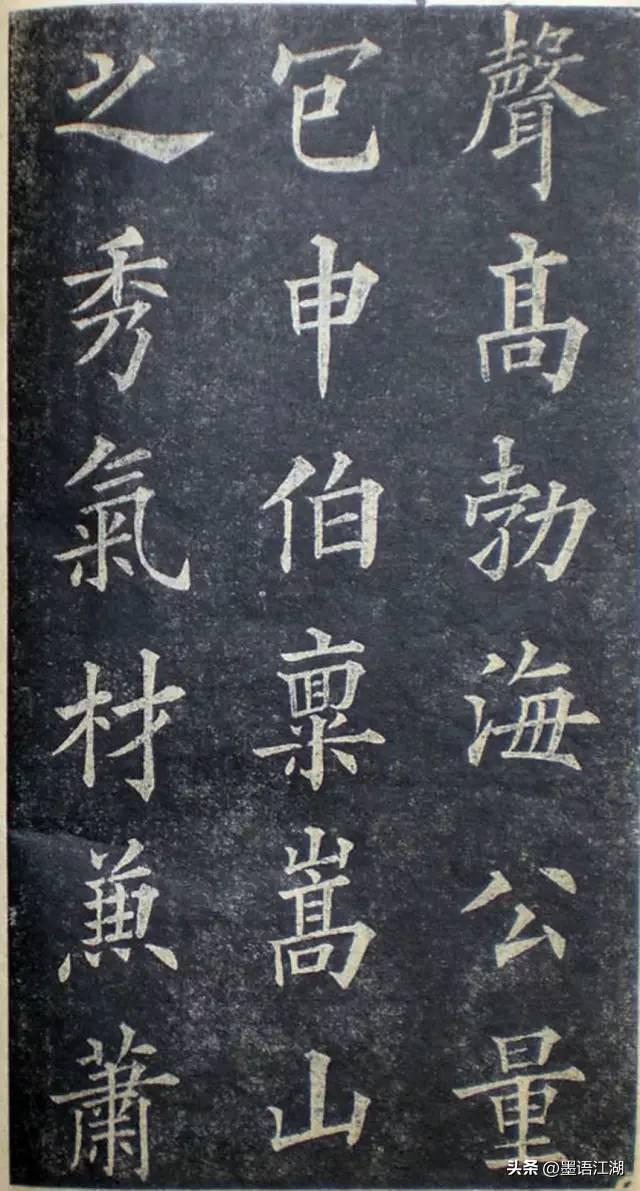 聲髙勃海公量
㝉申伯稟嵩山
之秀氣材兼蕭
头条 @墨语江湖